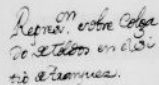 Represon. sobre Colga
do de Toldos en el Si
tio de Aranjuez.